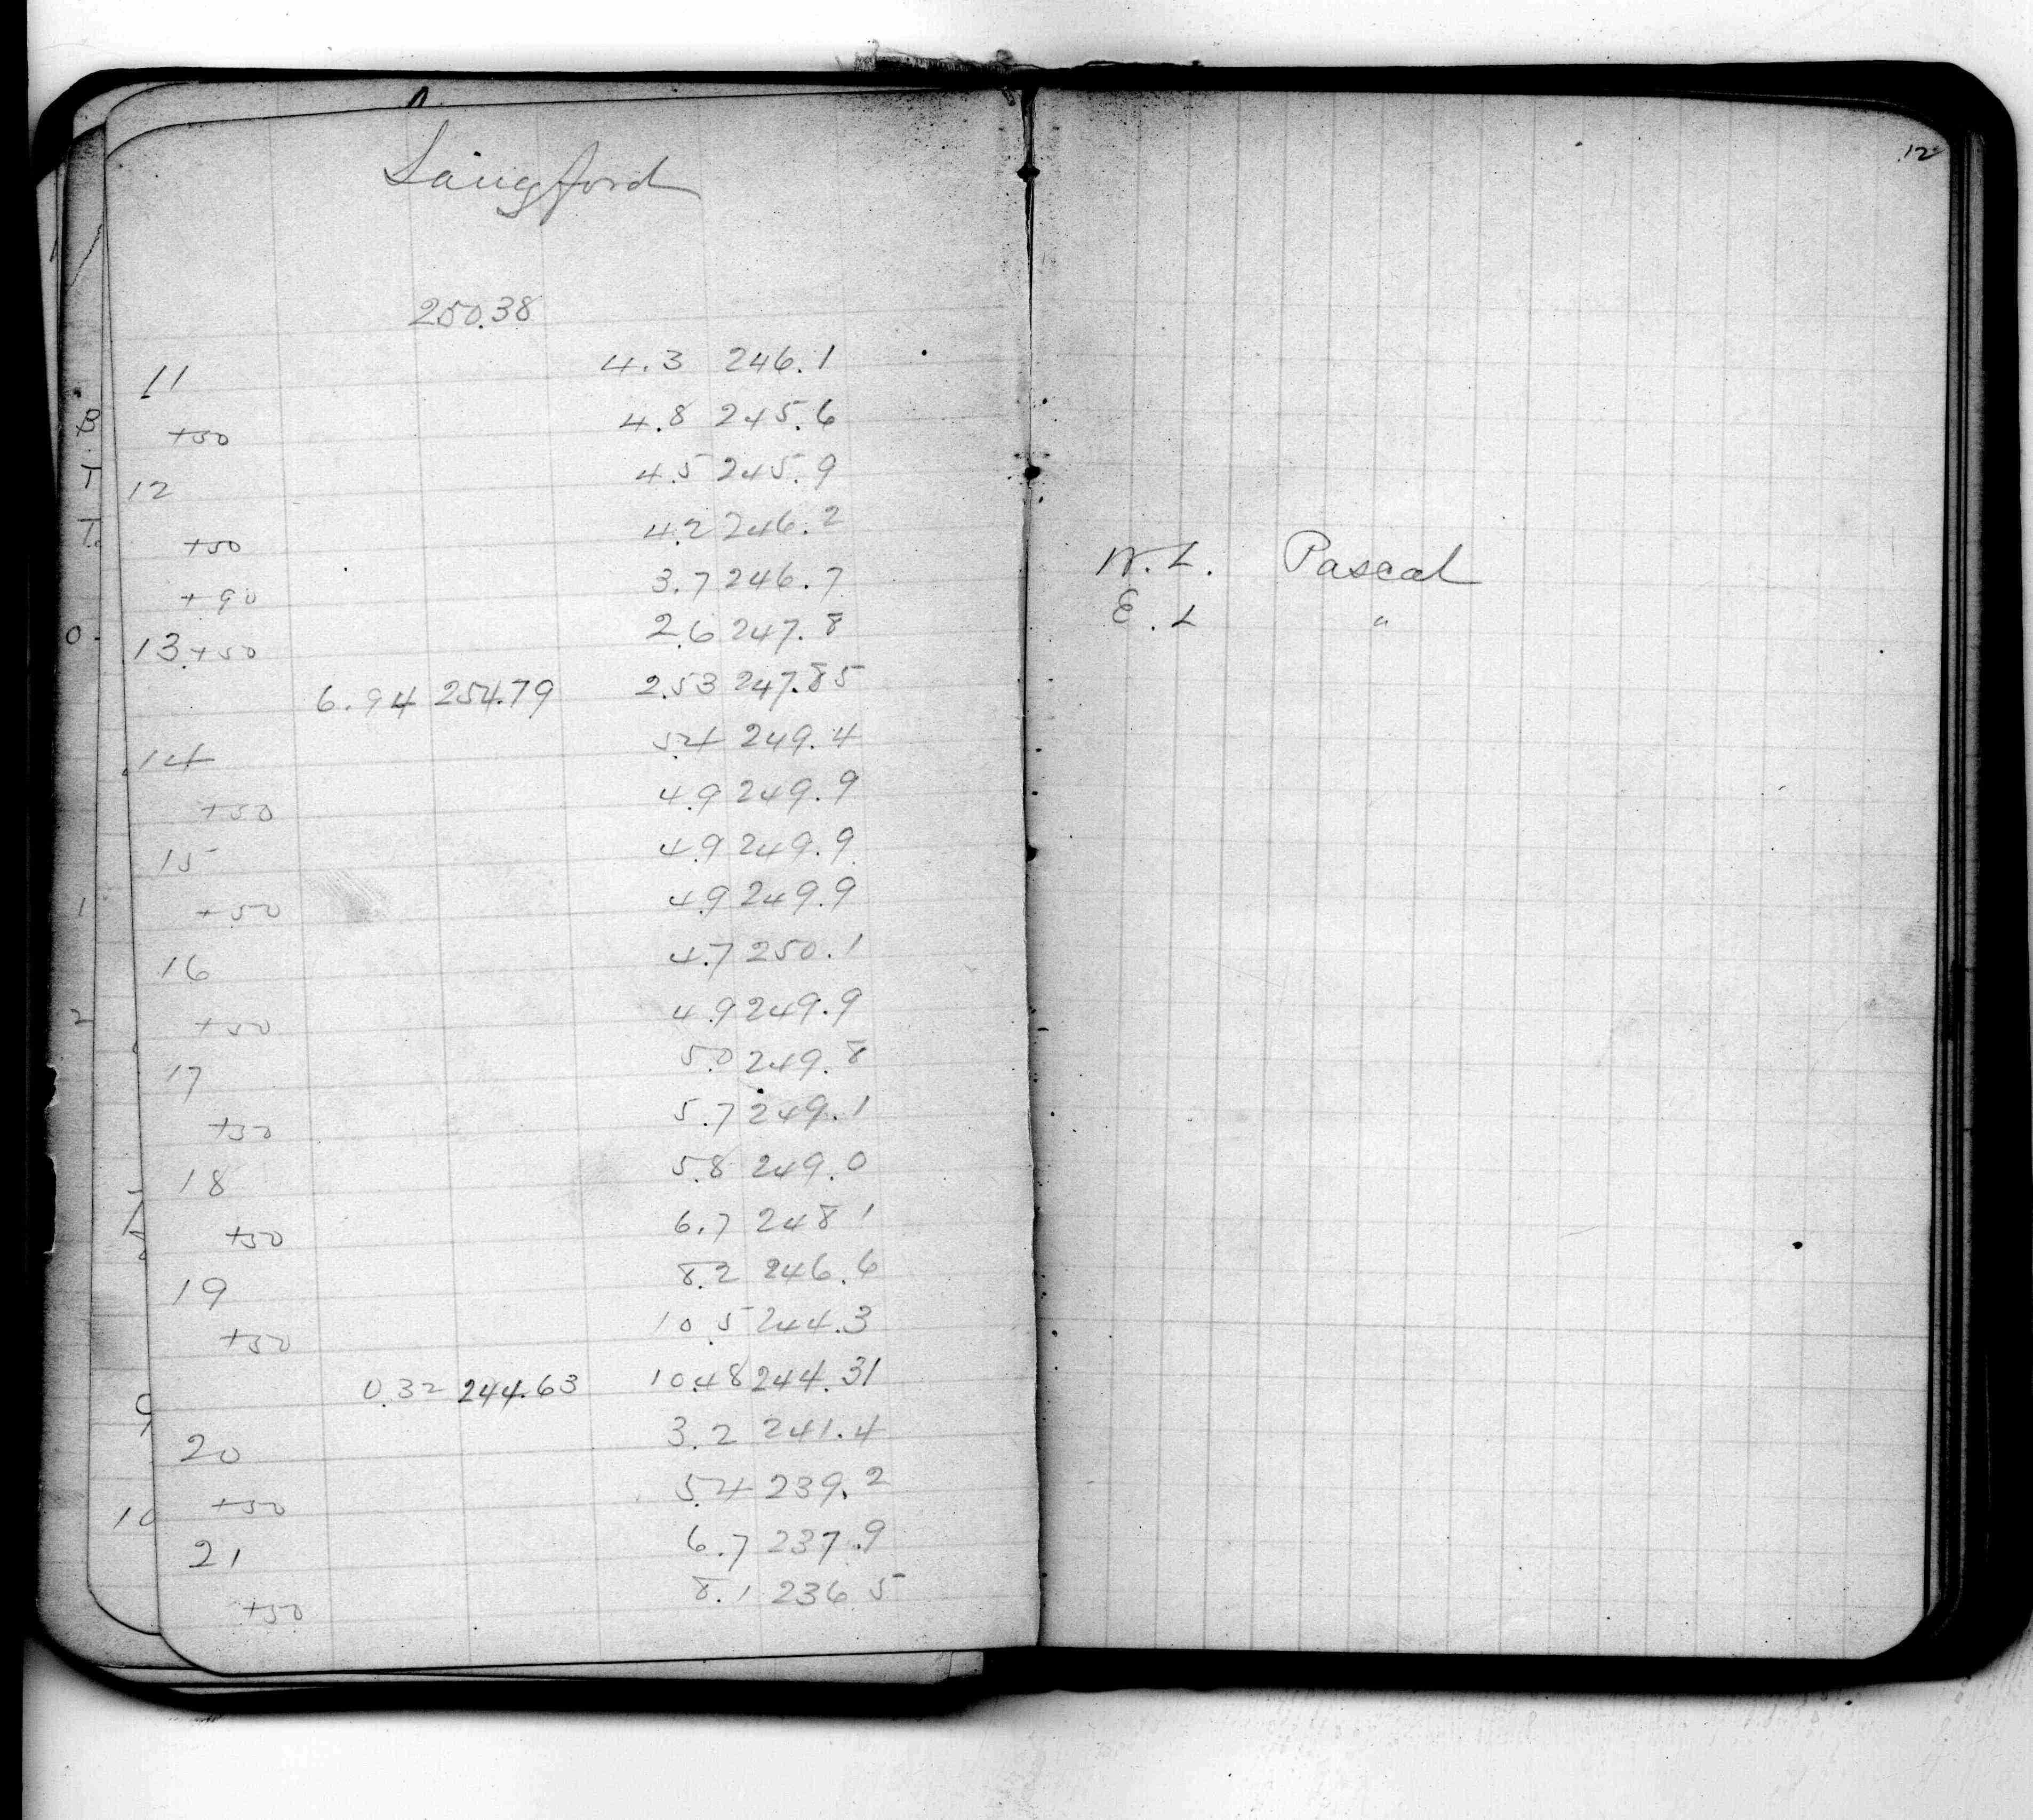 Langford
250.38
11 4.3 246.1
+50 4.8 245.6
12 4.5 245.9
+50 4.2 246.2
+90 3.7 246.7
13+50 2.6 247.8
6.94 254.79 2.53 247.85
14 5.4 249.4
+50 4.9 249.9
15 4.9 249.9
+50 4.9 249.9
16 4.7 250.1
+50 4.9 249.9
17 5.0 249.8
+50 5.7 249.1
18 5.8 249.0
+50 6.7 248 1
19 8.2 246.6
+50 10.5 244.3
0.32 244.63 10.48 244.31
20 3.2 241.4
+50 5.4 239.2
21 6.7 237.9
+50 8.1 236 5
B
T
T.
0
1
2
9
10
12
W.L. Pascal
E.L "